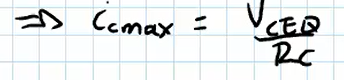 ⇒ i_Cmax = V_CEQ / R_C